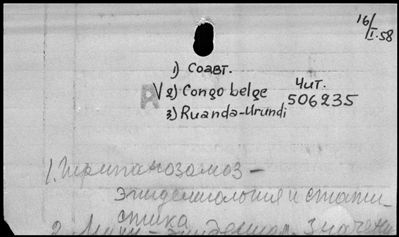 16/I.58
1) Соавт.
V 2) Congo belge
Чит.
506235
3) Ruanda-Urundi
R
1. Трипанозомоз –
эпидемиология и стати-
стика
2. Мухи –